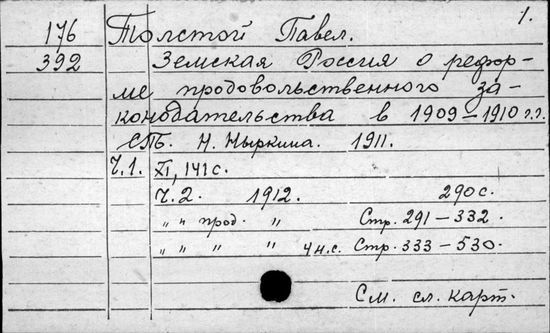 1.
176 Толстой Павел.
392 Земская Россия о рефор-
ме продовольственного за-
конодательства в 1909–1910 г.г.
СПБ. Н. Ныркина. 1911.
Ч.1. XI, 141 с.
Ч.2. 1912. 290 с.
„ „ прод. „ Стр. 291–332.
„ „ „ „ 4 н.с. Стр. 333–530.
См. сл. карт.